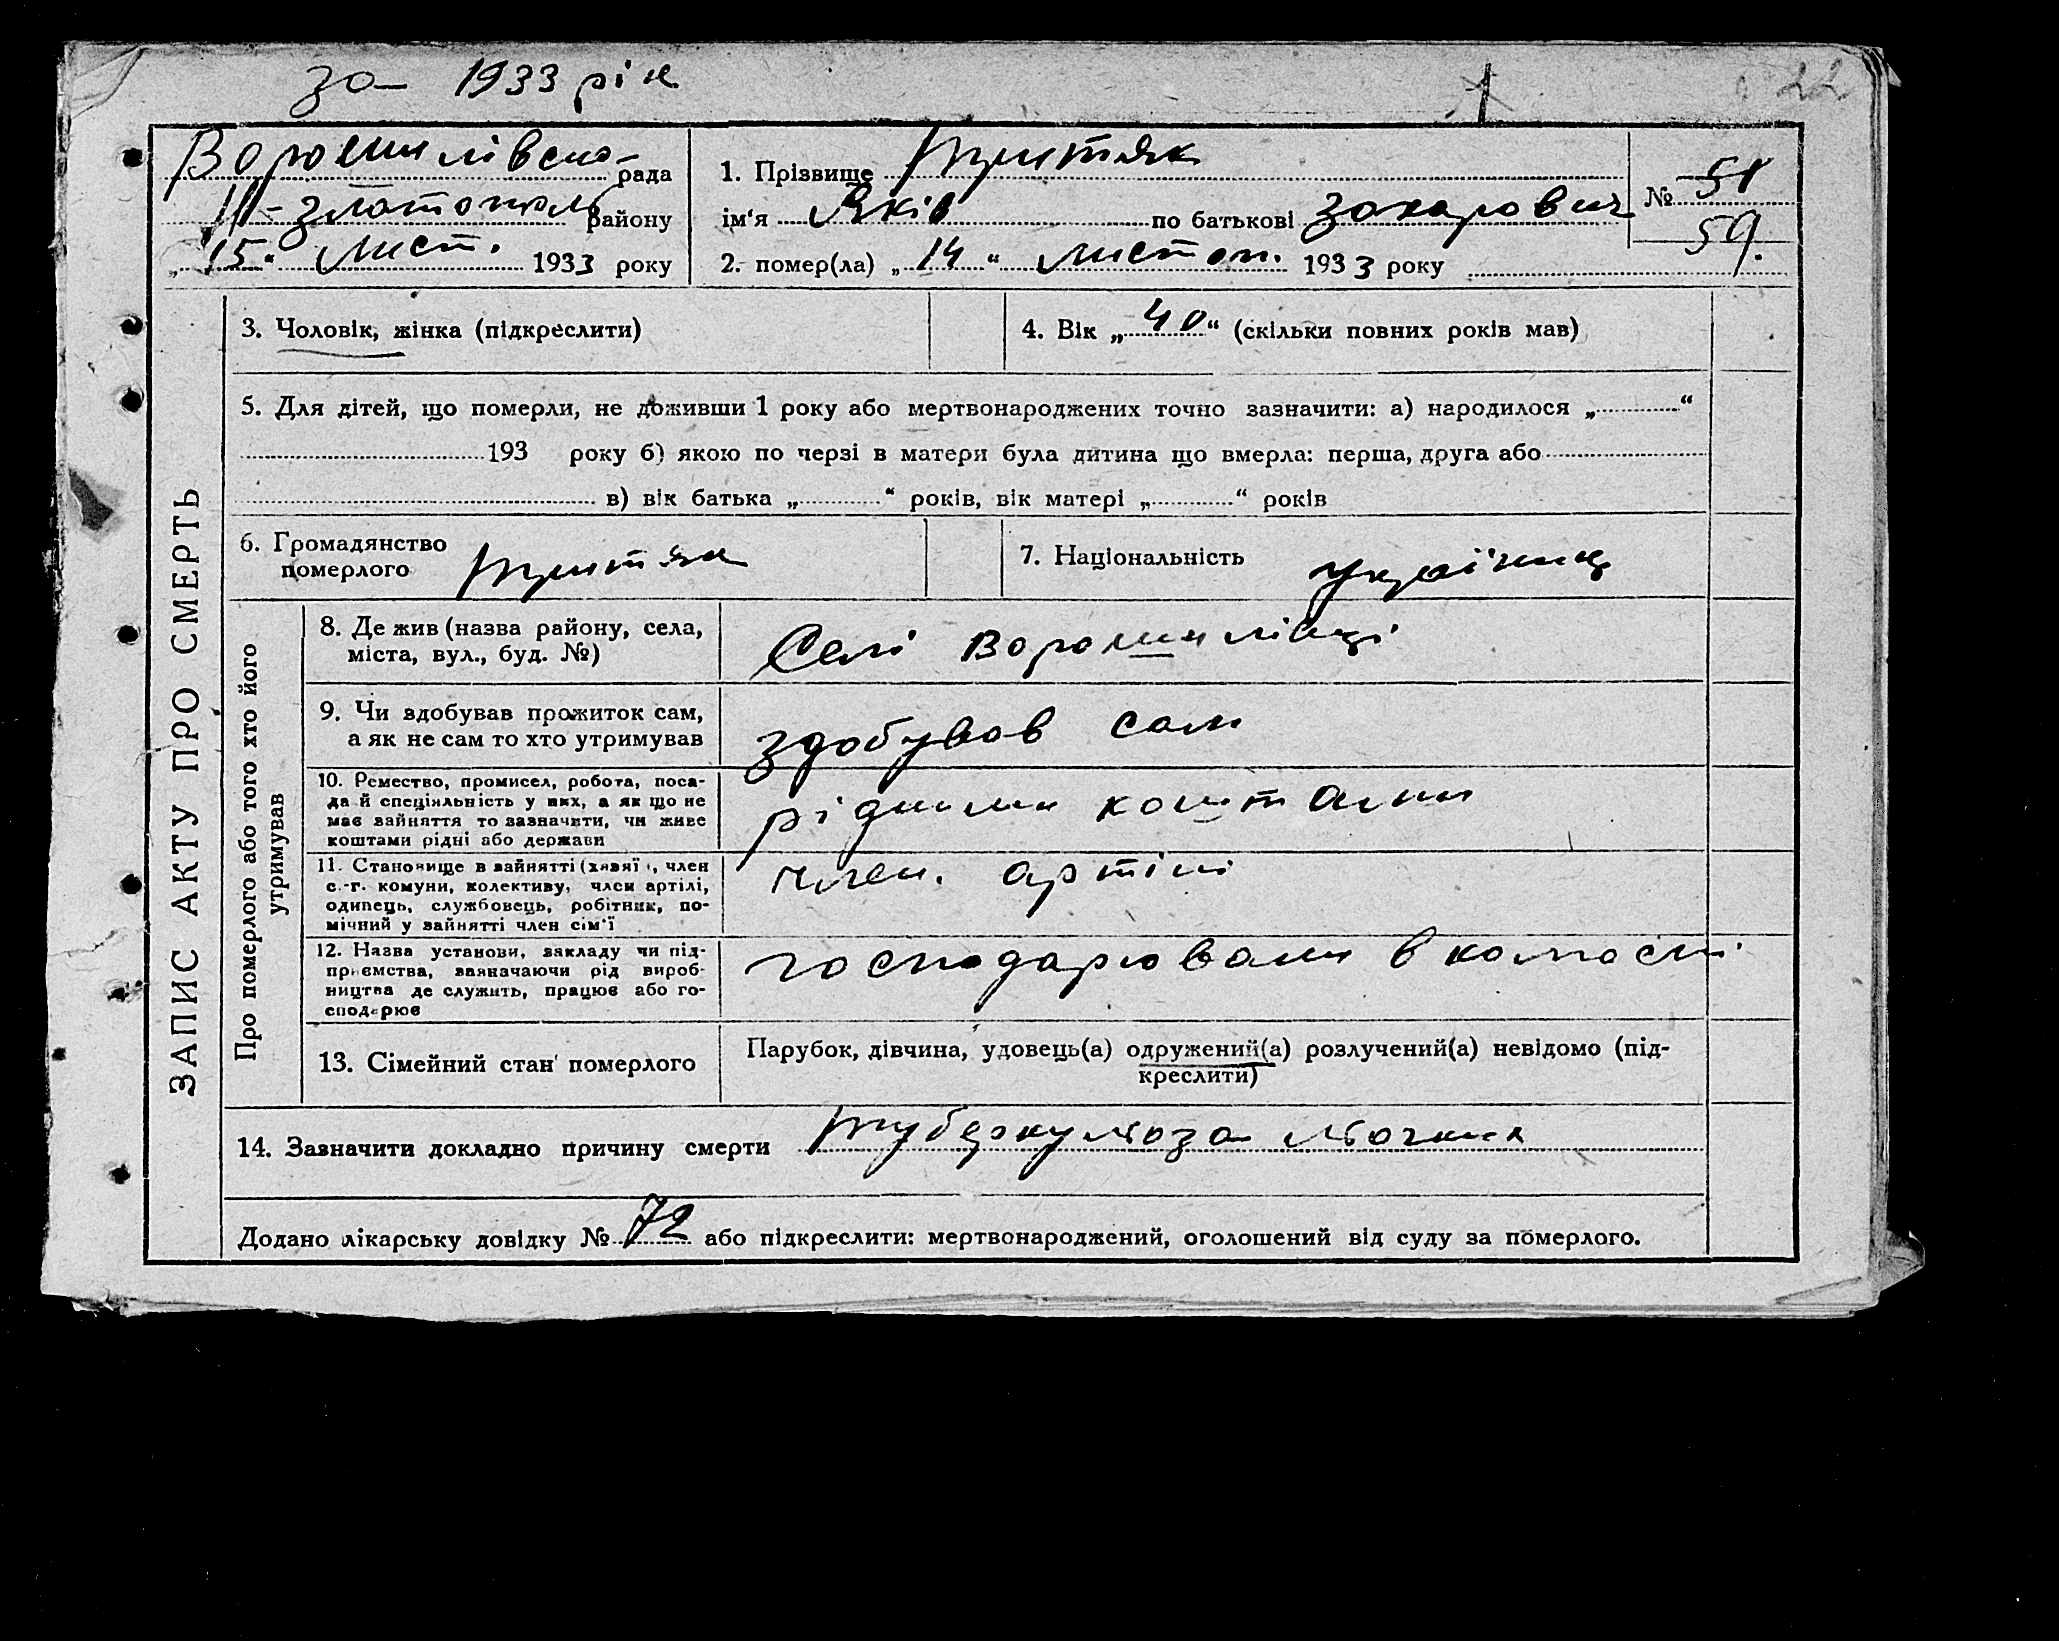 за 1933 рік
22
Ворошилівська рада
Златопіль району
„15“ лист. 1933 року
1. Прізвище
ім‘я Яків по батькові Захарович
2. помер(ла) „14“ листоп. 1933 року
№ 51
59.
3. Чоловік, жінка (підкреслити)
4. Вік „40“ (скільки повних років мав)
5. Для дітей, що померли, не доживши 1 року або мертвонароджених точно зазначити: а) народилося „ “
193 року б) якою по черзі в матери була дитина що вмерла: перша, друга або
в) вік батька „ “ років, вік матері „ “ років
6. Громадянство
померлого
7. Національність українец
ЗАПИС АКТУ ПРО СМЕРТЬ
Про померлого або того хто його
утримував
8. Де жив (назва району, села,
міста, вул., буд. №)
Селі Ворошилівці
9. Чи здобував прожиток сам,
а як не сам то хто утримував
здобував сам
10. Ремество, промисел, робота, поса-
да й спеціяльність у них, а як що не
має зайняття то зазначити, чи живе
коштами рідні або держави
рідними коштами
11. Становище в зайнятті (хазяї, член
с.-г. комуни, колективу, член артілі,
одинець, службовець, робітник, по-
мічний у зайнятті член сім‘ї
член. артілі
12. Назва установи, закладу чи під-
приємства, зазначаючи рід вироб-
ництва де служить, працює або го-
сподарює
господарювали в колгоспі
13. Сімейний стан померлого
Парубок, дівчина, удовець(а) одружений(а) розлучений(а) невідомо (під-
креслити)
14. Зазначити докладно причину смерти туберкульоза льочких
Додано лікарську довідку № 72 або підкреслити: мертвонароджений, оголошений від суду за померлого.